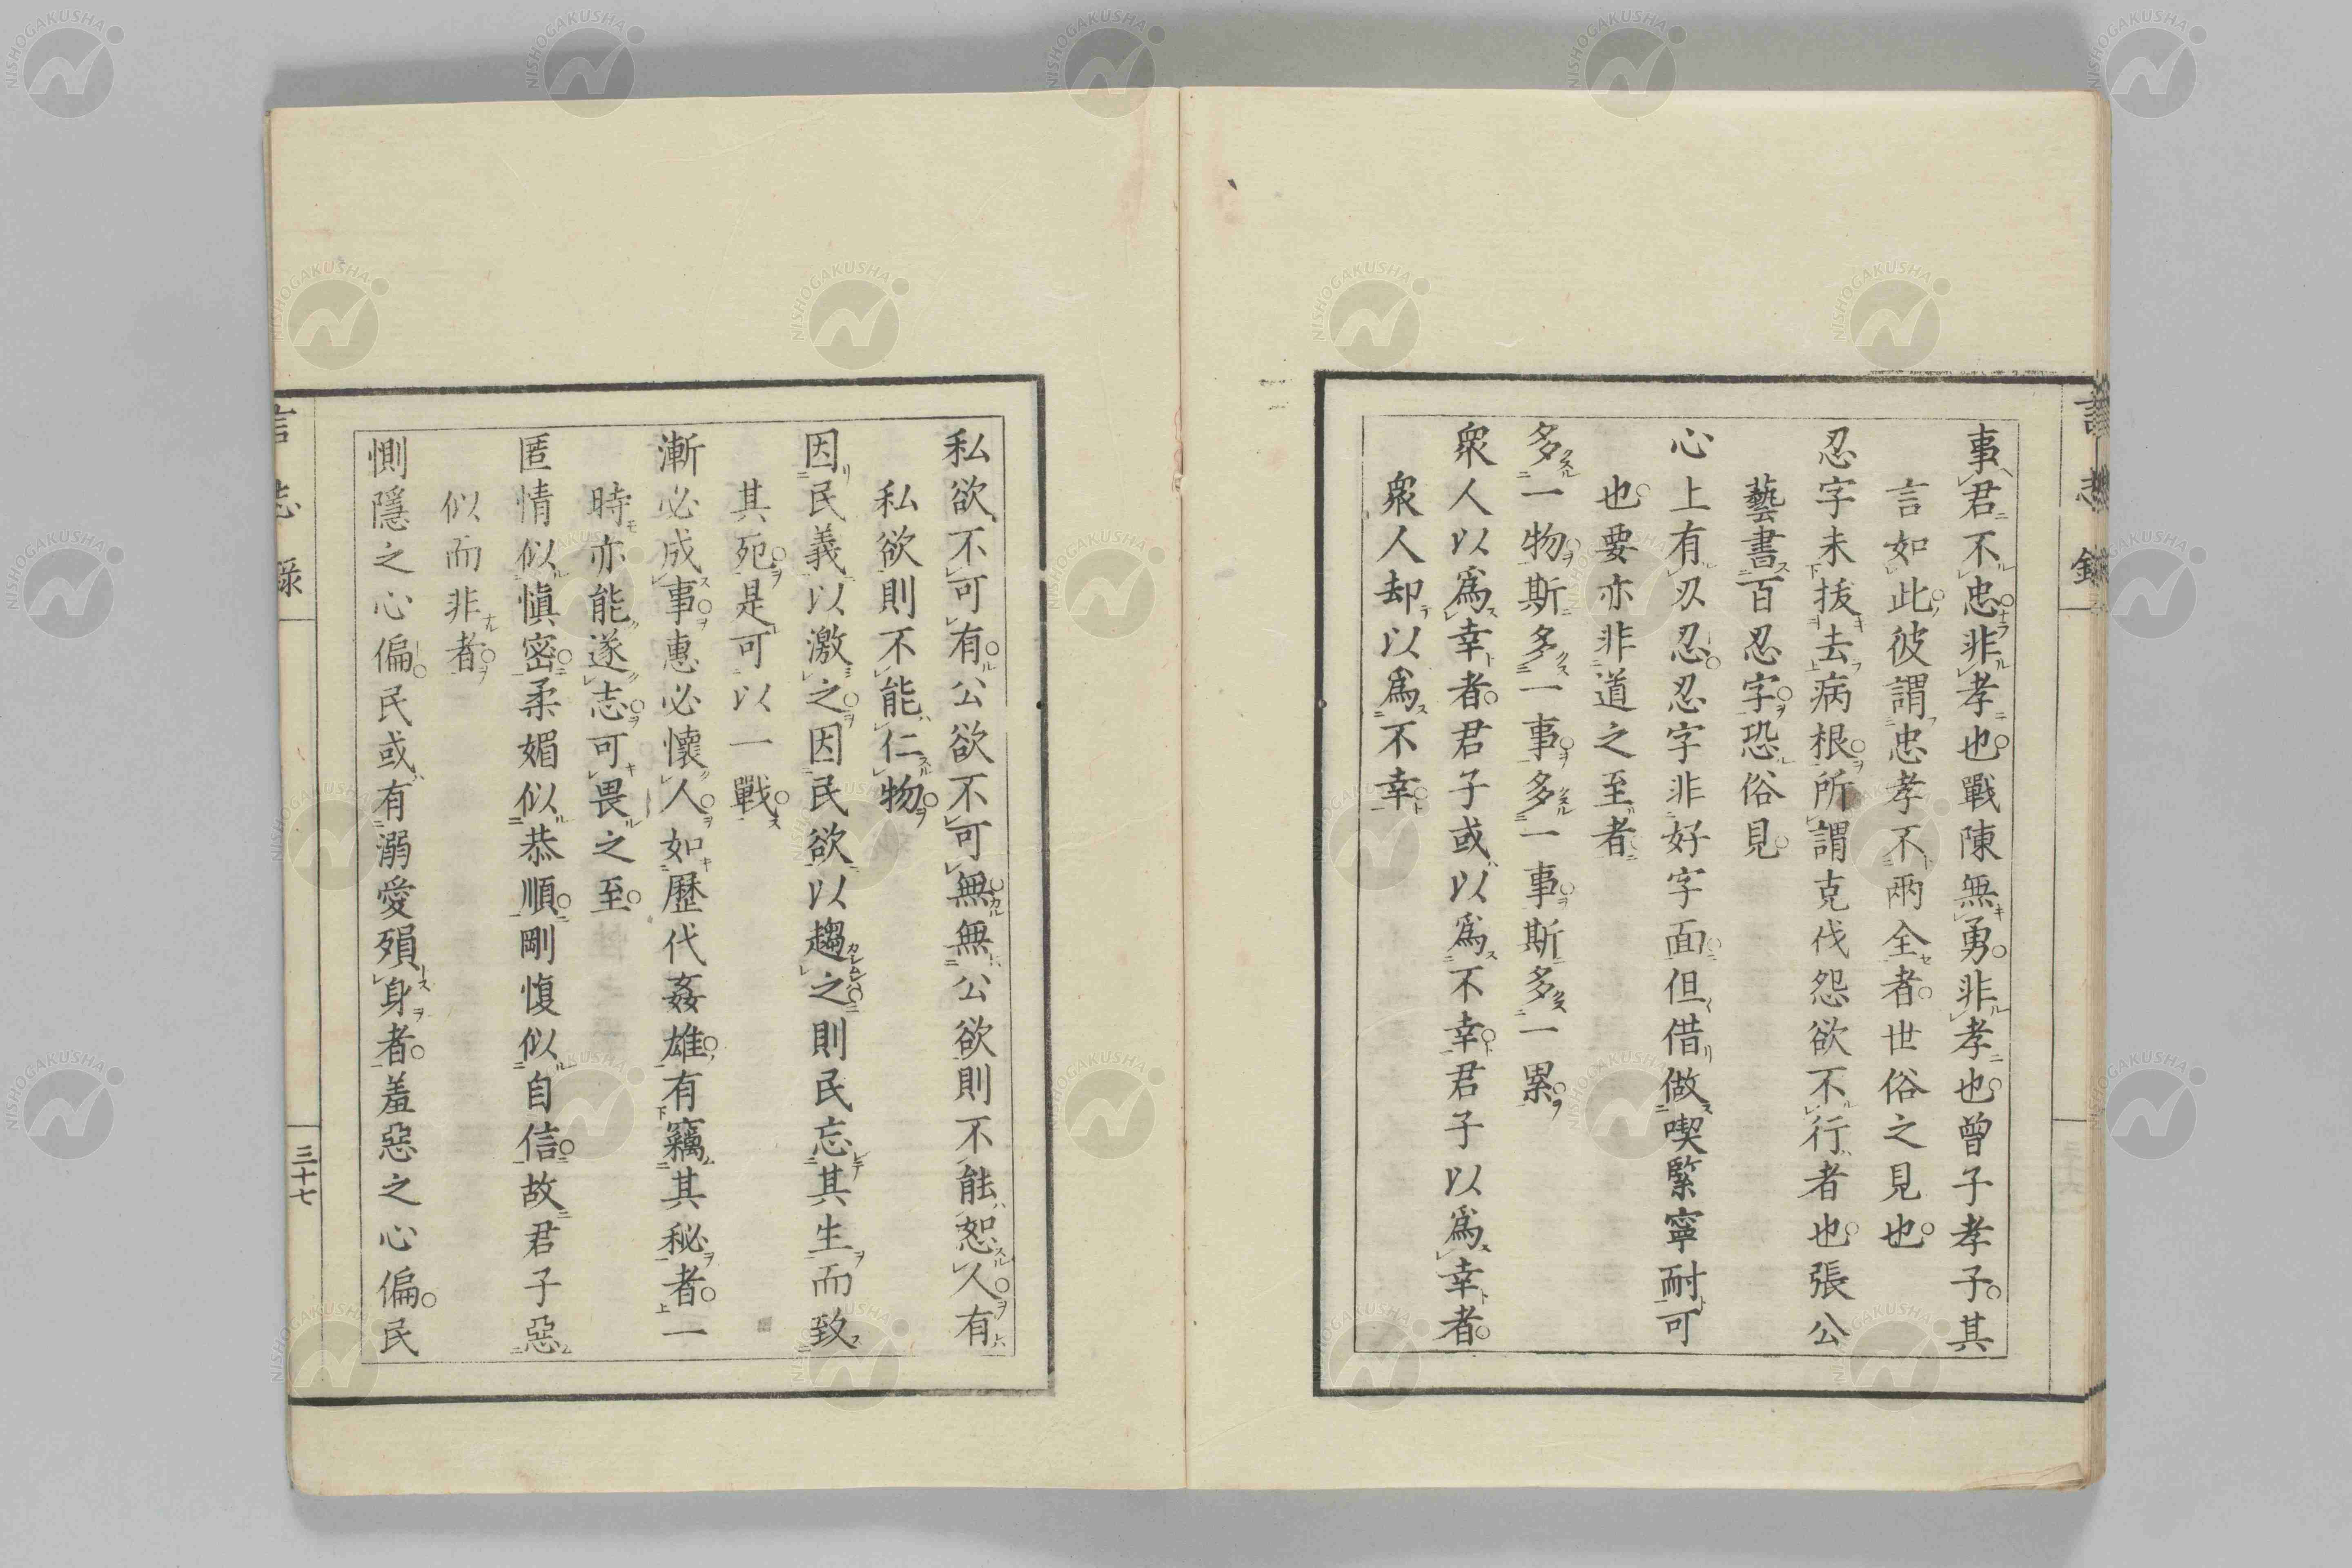 事君不忠非孝也戰陳無勇非孝也曾子孝子其
言如此彼謂忠孝不兩全者世俗之見也
忍字未抜去病根所謂克伐怨欲不行者也張公
藝書百忍字恐俗見
心上有刃忍忍字非好字面但借做喫緊寧耐可
也要亦非道之至者
多一物斯多一事多一事斯多一累
衆人以爲幸者君子或以爲不幸君子以爲幸者
衆人却以爲不幸
私欲不可有公欲不可無無公欲則不能恕人有
私欲則不能仁物
因民義以激之因民欲以趨之則民忘其生而致
其死是可以一戰
漸必成事惠必懷人如歷代姦雄有竊其秘者一
時亦能遂志可畏之至
匿情似愼密柔媚似恭順剛愎似自信故君子惡
似而非者
惻隱之心偏民或有溺愛殞身者羞惡之心偏民
言志錄
三十七
NISHOGAKUSHA